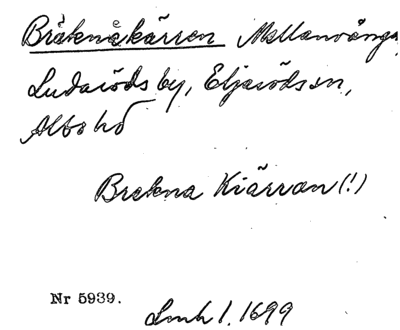 Bräknakärren Mellanvånga
Ludaröds by, Eljaröds sn,
Albo hd
Brekna Kiärran (!)
Nr 5939.
Lmk 1. 1699